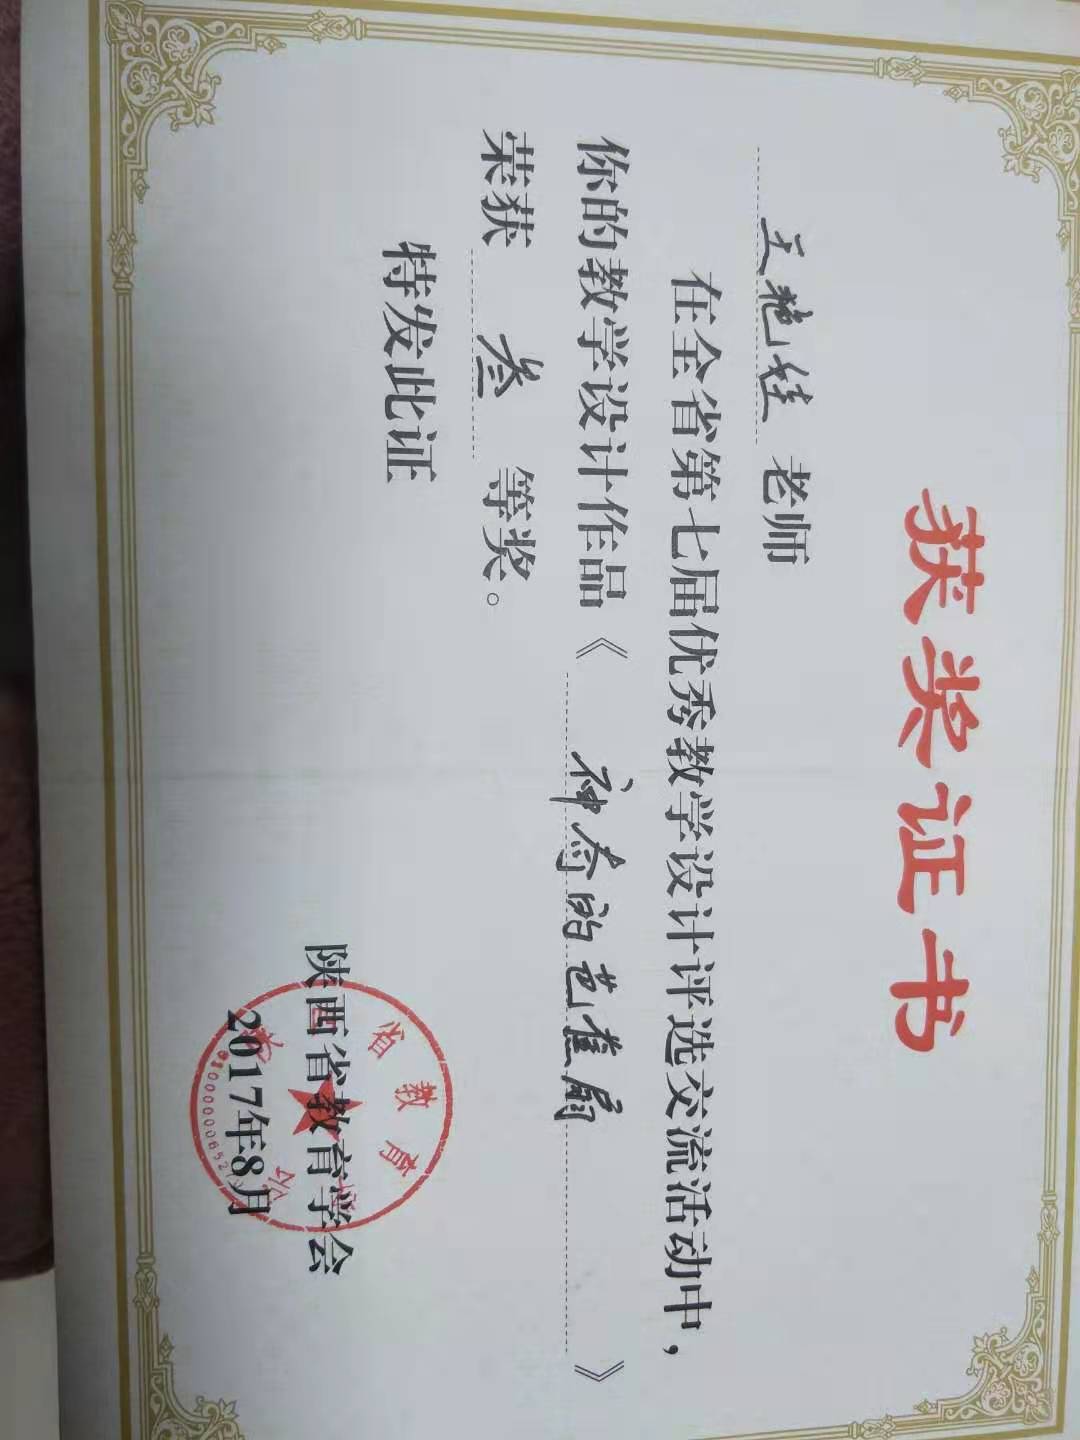 获奖证书
王艳娃 老师
在全省第七届优秀教学设计评选交流活动中，
你的教学设计作品《 神奇的芭蕉扇 》
荣获 叁 等奖。
特发此证
陕西省教育学会
2017年8月